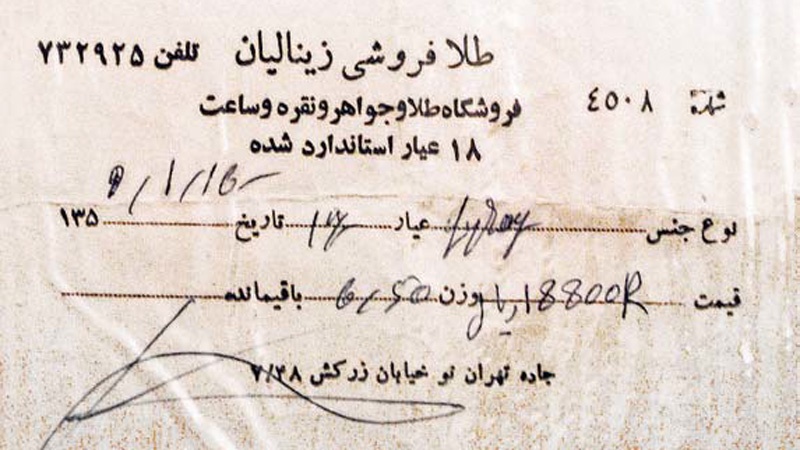 طلا فروشی زینالیان تلفن ۷۳۲۹۲۵
شماره ٤٥٠٨
فروشگاه طلا و جواهر و نقره و ساعت
۱۸ عیار استاندارد شده
نوع جنس عیار تاریخ ۱۳۵
قیمت 18800R ریال وزن 6,50 باقیمانده
جاده تهران نو خیابان زرکش ۷/۳۸